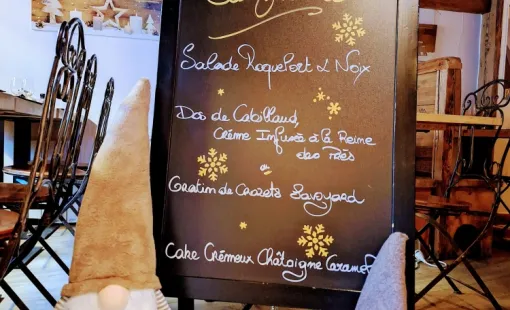 Salade Roquefort & Noix
Dos de Cabillaud,
Crème Infusée à la Reine
des Prés
ou
Gratin de Crozets Savoyard
Cake Crémeux Châtaigne Caramel